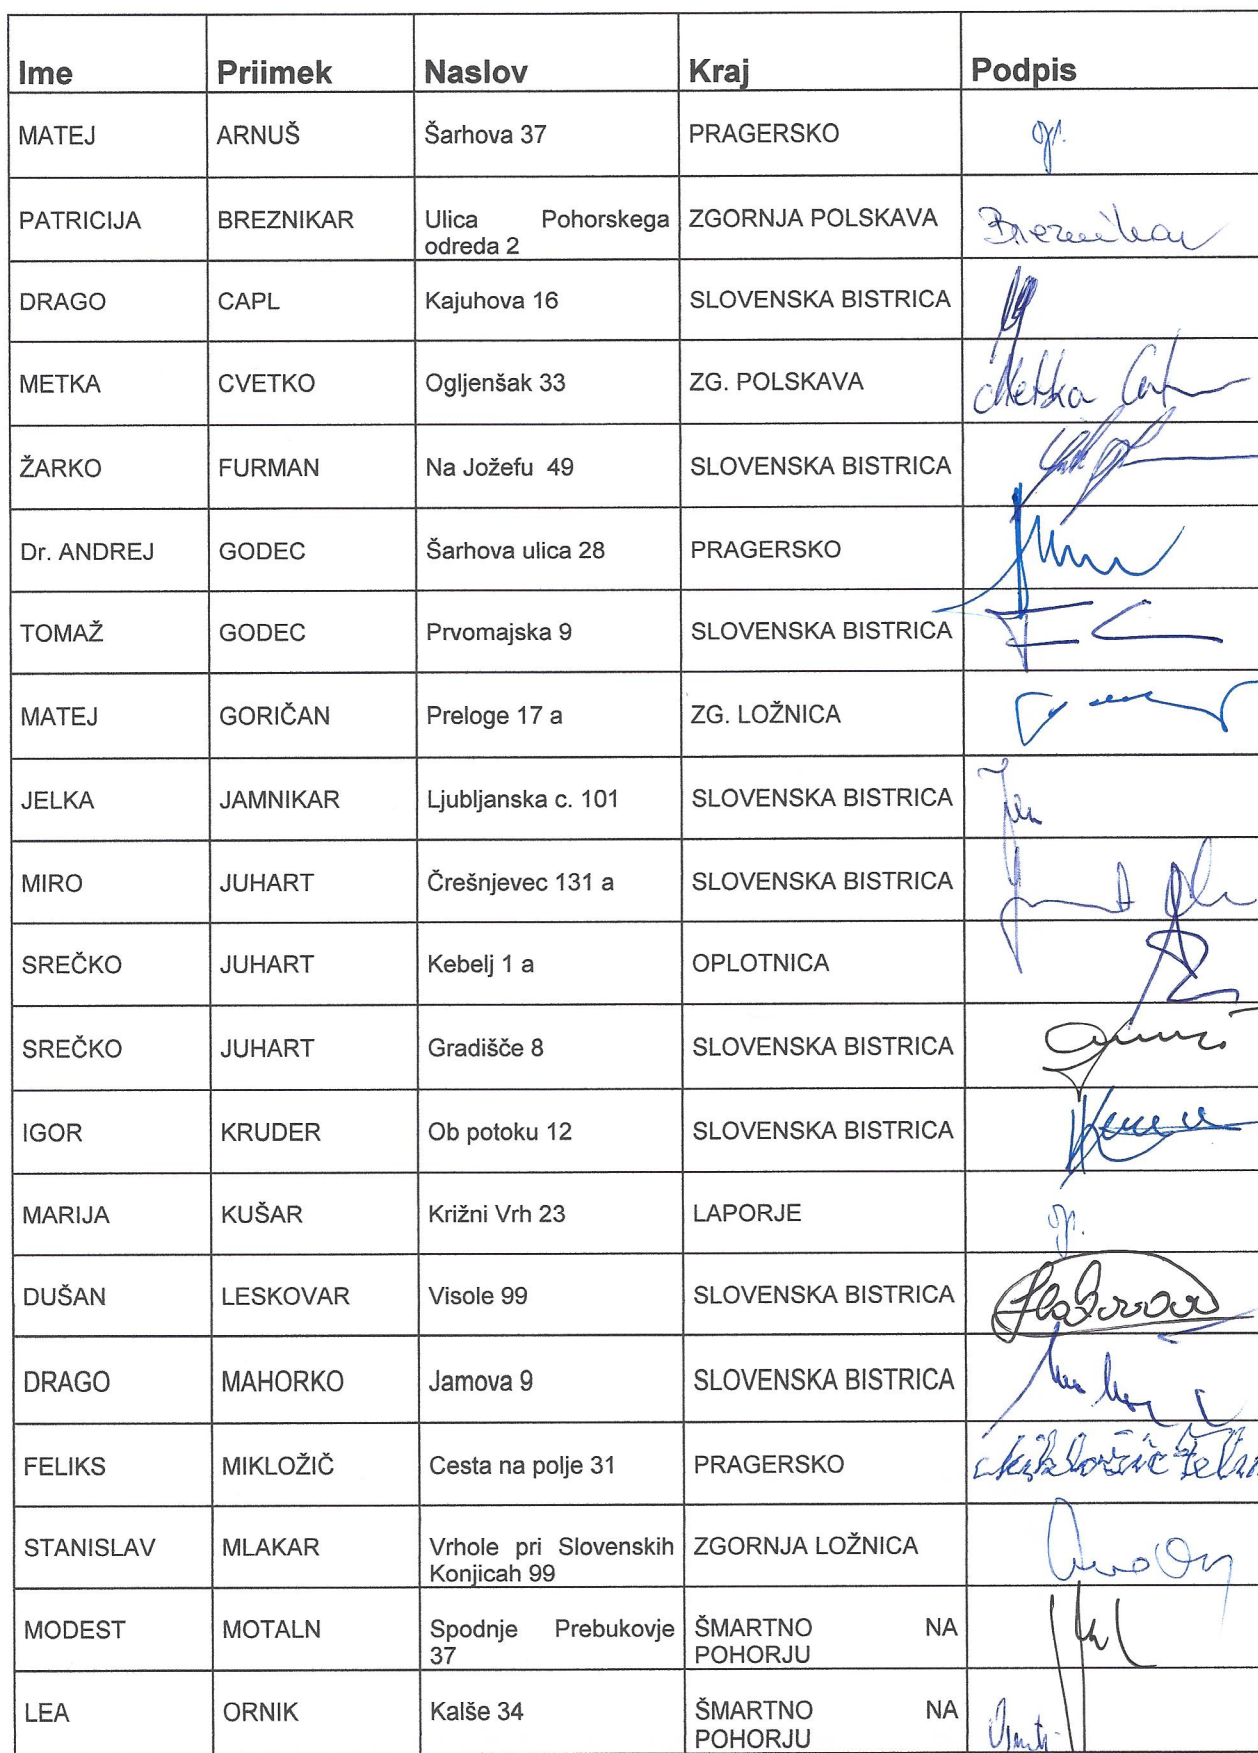 Ime Priimek Naslov Kraj Podpis
MATEJ ARNUŠ Šarhova 37 PRAGERSKO op.
PATRICIJA BREZNIKAR Ulica Pohorskega ZGORNJA POLSKAVA Breznikar
odreda 2
DRAGO CAPL Kajuhova 16 SLOVENSKA BISTRICA
METKA CVETKO Ogljenšak 33 ZG. POLSKAVA Metka
ŽARKO FURMAN Na Jožefu 49 SLOVENSKA BISTRICA
Dr. ANDREJ GODEC Šarhova ulica 28 PRAGERSKO
TOMAŽ GODEC Prvomajska 9 SLOVENSKA BISTRICA
MATEJ GORIČAN Preloge 17 a ZG. LOŽNICA
JELKA JAMNIKAR Ljubljanska c. 101 SLOVENSKA BISTRICA
MIRO JUHART Črešnjevec 131 a SLOVENSKA BISTRICA
SREČKO JUHART Kebelj 1 a OPLOTNICA
SREČKO JUHART Gradišče 8 SLOVENSKA BISTRICA
IGOR KRUDER Ob potoku 12 SLOVENSKA BISTRICA
MARIJA KUŠAR Križni Vrh 23 LAPORJE op.
DUŠAN LESKOVAR Visole 99 SLOVENSKA BISTRICA
DRAGO MAHORKO Jamova 9 SLOVENSKA BISTRICA
FELIKS MIKLOŽIČ Cesta na polje 31 PRAGERSKO Mikložič
STANISLAV MLAKAR Vrhole pri Slovenskih ZGORNJA LOŽNICA
Konjicah 99
MODEST MOTALN Spodnje Prebukovje ŠMARTNO NA
37 POHORJU
LEA ORNIK Kalše 34 ŠMARTNO NA
POHORJU